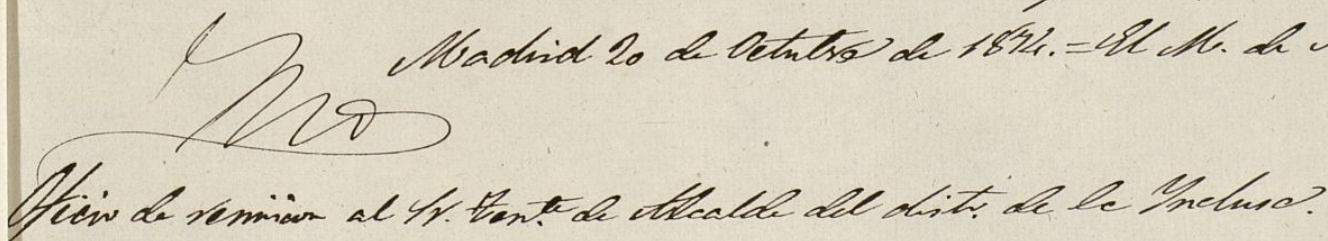 Madrid 20 de Octubre de 1874. = El M. de
Oficio de remision al Sr. Tente de Alcalde del distr. de la Inclusa.